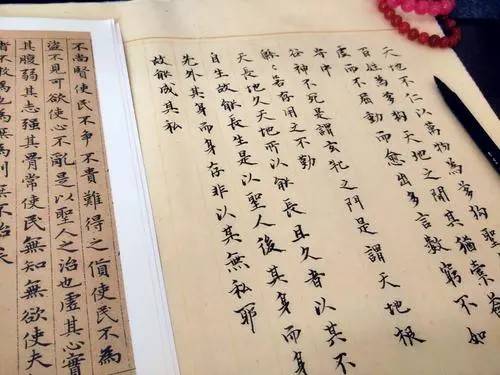 天地不仁以萬物為芻狗聖
百姓為芻狗天地之間其猶橐籥
虛而不屈動而愈出多言數窮不如
守中
谷神不死是謂玄牝之門是謂天地根
綿〻若存用之不勤
天長地久天地所以能長且久者以其不
自生故能長生是以聖人後其身而身
先外其身而身存非以其無私耶
故能成其私
不尚賢使民不爭不貴難得之貨使民不為
盜不見可欲使心不亂是以聖人之治也虛其心實
其腹弱其志強其骨常使民無知無欲使夫
者不敢為也為無為則無不治矣